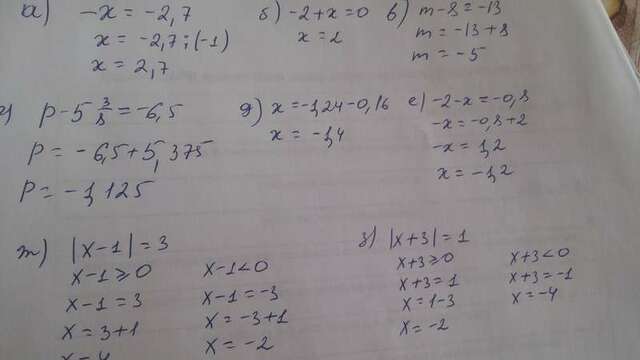 а) -x = -2,7
x = -2,7 : (-1)
x = 2,7
б) -2+x=0
x = 2
в) m-8=-13
m = -13+8
m = -5
г) p-5 3/8 = -6,5
p = -6,5+5,375
p = -1,125
д) x=-1,24-0,16
x = -1,4
е) -2-x=-0,8
-x=-0,8+2
-x = 1,2
x = -1,2
ж) |x-1|=3
x-1≥0
x-1=3
x=3+1
x=4
x-1<0
x-1=-3
x=-3+1
x=-2
з) |x+3|=1
x+3≥0
x+3=1
x=1-3
x=-2
x+3<0
x+3=-1
x=-4